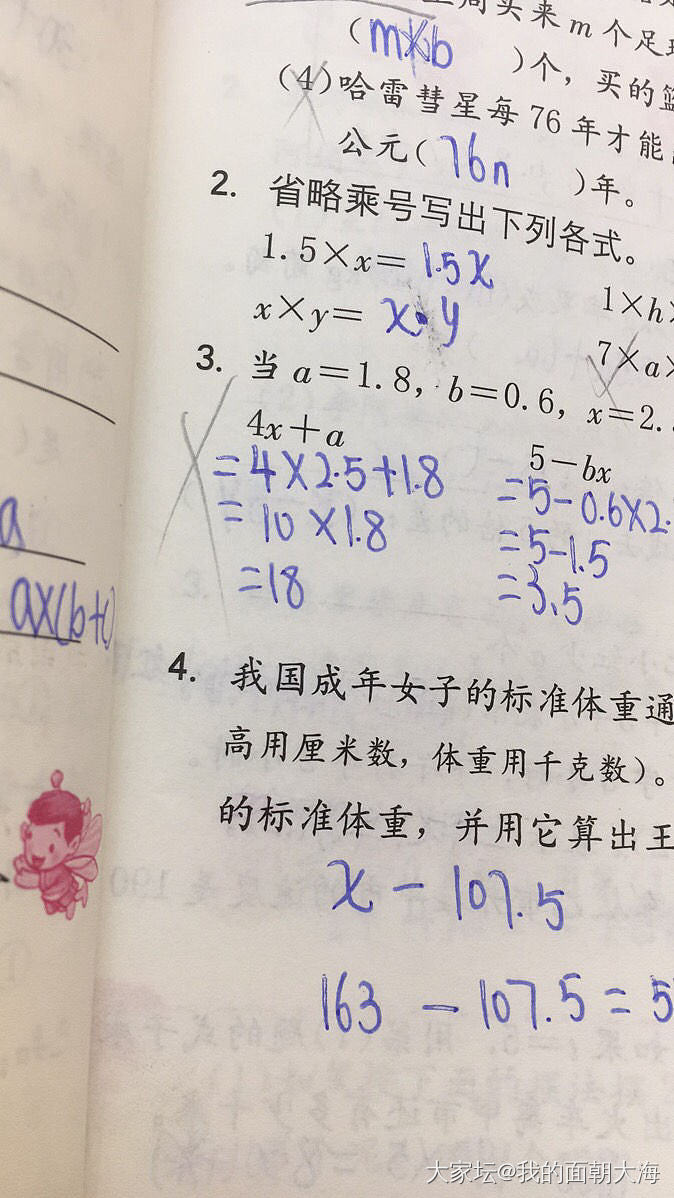 周买来m个足球
(m×b )个，买的篮
(4)哈雷彗星每76年才能
公元(76n )年。
2. 省略乘号写出下列各式。
1.5×x=1.5x
1×h×
x×y=x·y
7×a×
3. 当a=1.8，b=0.6，x=2.
4x+a
5-bx
=4×2.5+1.8
=5-0.6×2.
=10×1.8
=5-1.5
=18
=3.5
a
a×(b+c)
4. 我国成年女子的标准体重通
高用厘米数，体重用千克数)。
的标准体重，并用它算出王
x-107.5
163-107.5=5
大家坛@我的面朝大海